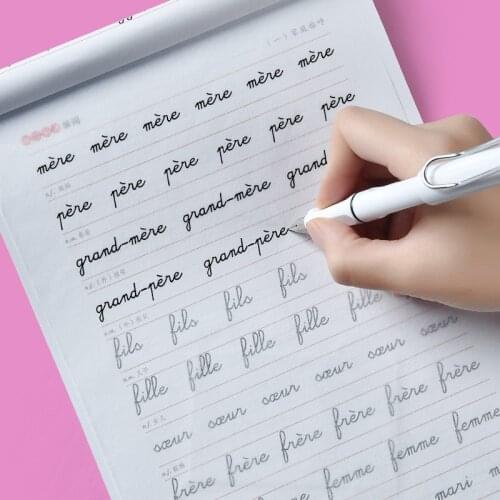 (一) 家庭称呼
mère mère mère mère mère mère
père père père père père père
grand-mère grand-mère grand
grand-père grand-père
fils fils fils fils
fille fille fille fille fille
sœur sœur sœur sœur sœur sœur
frère frère frère frère frère frère
femme femme femme
mari